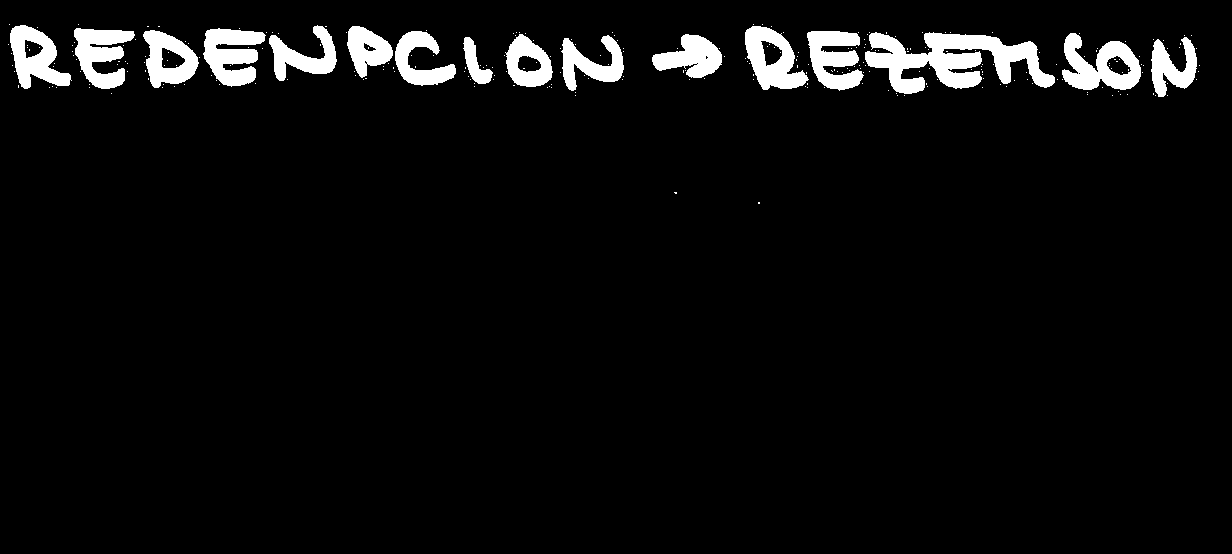 REDENPCION → REZEMSON